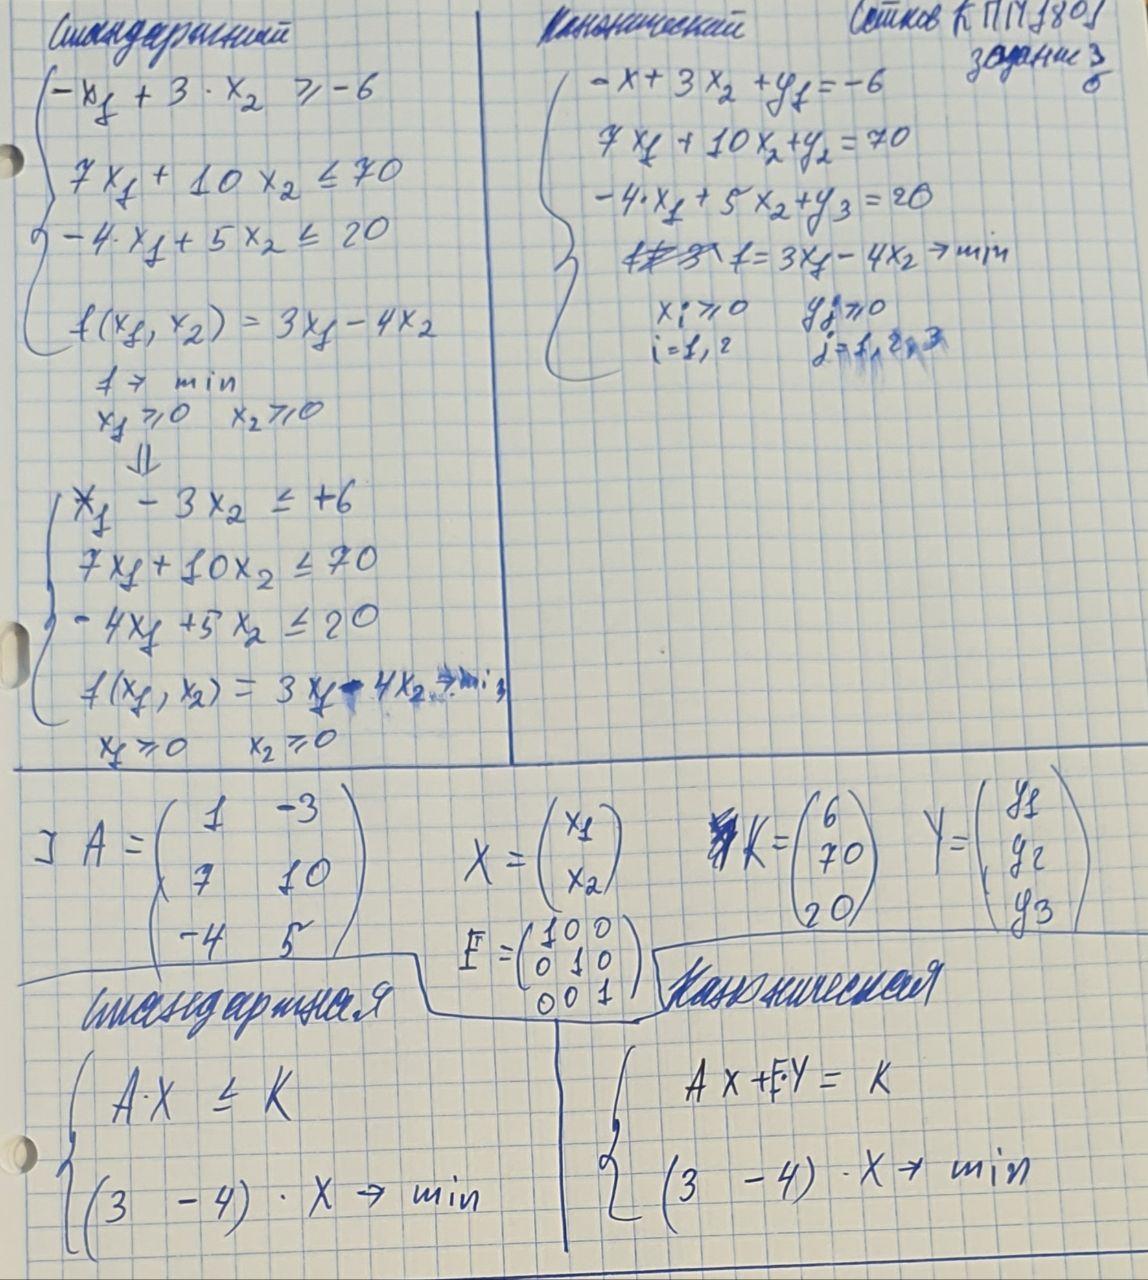 Стандартный
-x₁ + 3 · x₂ ≥ -6
7x₁ + 10x₂ ≤ 70
-4·x₁ + 5x₂ ≤ 20
f(x₁, x₂) = 3x₁ - 4x₂
f → min
x₁ ≥ 0 x₂ ≥ 0
⇓
x₁ - 3x₂ ≤ +6
7x₁ + 10x₂ ≤ 70
-4x₁ + 5x₂ ≤ 20
f(x₁, x₂) = 3x₁ - 4x₂ → min
x₁ ≥ 0 x₂ ≥ 0
Канонический
КППМ1801
задание 3
-x + 3x₂ + y₁ = -6
7x₁ + 10x₂ + y₂ = 70
-4·x₁ + 5x₂ + y₃ = 20
f = 3x₁ - 4x₂ → min
xᵢ ≥ 0 yⱼ ≥ 0
i = 1, 2 j = 1, 2, 3
A = ( 1 -3
7 10
-4 5 )
X = ( x₁
x₂ )
K = ( 6
70
20 )
Y = ( y₁
y₂
y₃ )
E = ( 1 0 0
0 1 0
0 0 1 )
Стандартная
A·X ≤ K
(3 -4) · X → min
Каноническая
AX + E·Y = K
(3 -4) · X → min